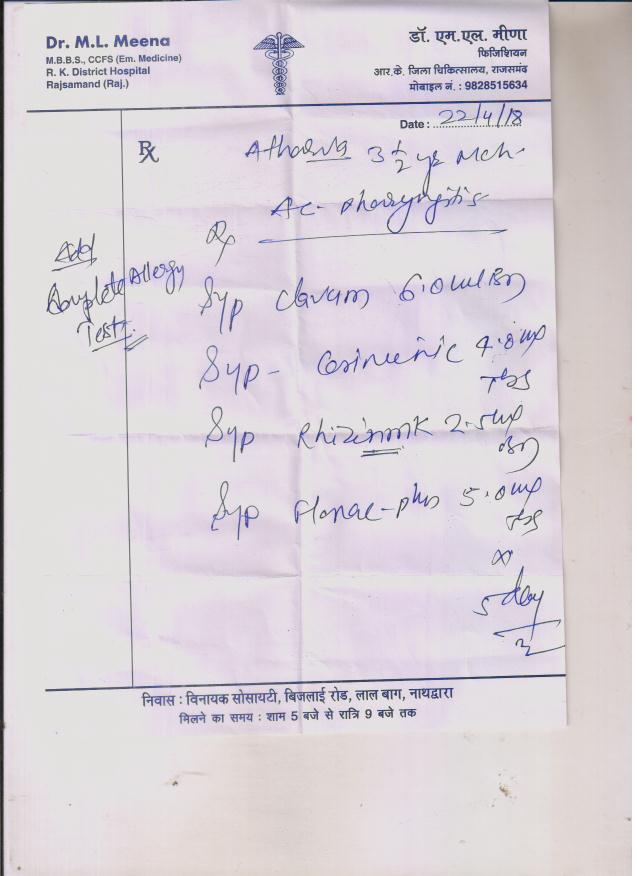 Dr. M.L. Meena
M.B.B.S., CCFS (Em. Medicine)
R. K. District Hospital
Rajsamand (Raj.)
डॉ. एम.एल. मीणा
फिजिशियन
आर.के. जिला चिकित्सालय, राजसमंद
मोबाइल नं. : 9828515634
Date : 22/4/18
Rx
3 1/2 yr Mch
Ac- pharyngitis
Rx
Adv
Complete Allergy
Test
Syp Clavam 6.0 ml BD
Syp - 4.0 ml
TDS
Syp Rhizin 2.5 ml
BD
Syp -plus 5.0 ml
TDS
x
5 day
निवास : विनायक सोसायटी, बिजलाई रोड, लाल बाग, नाथद्वारा
मिलने का समय : शाम 5 बजे से रात्रि 9 बजे तक